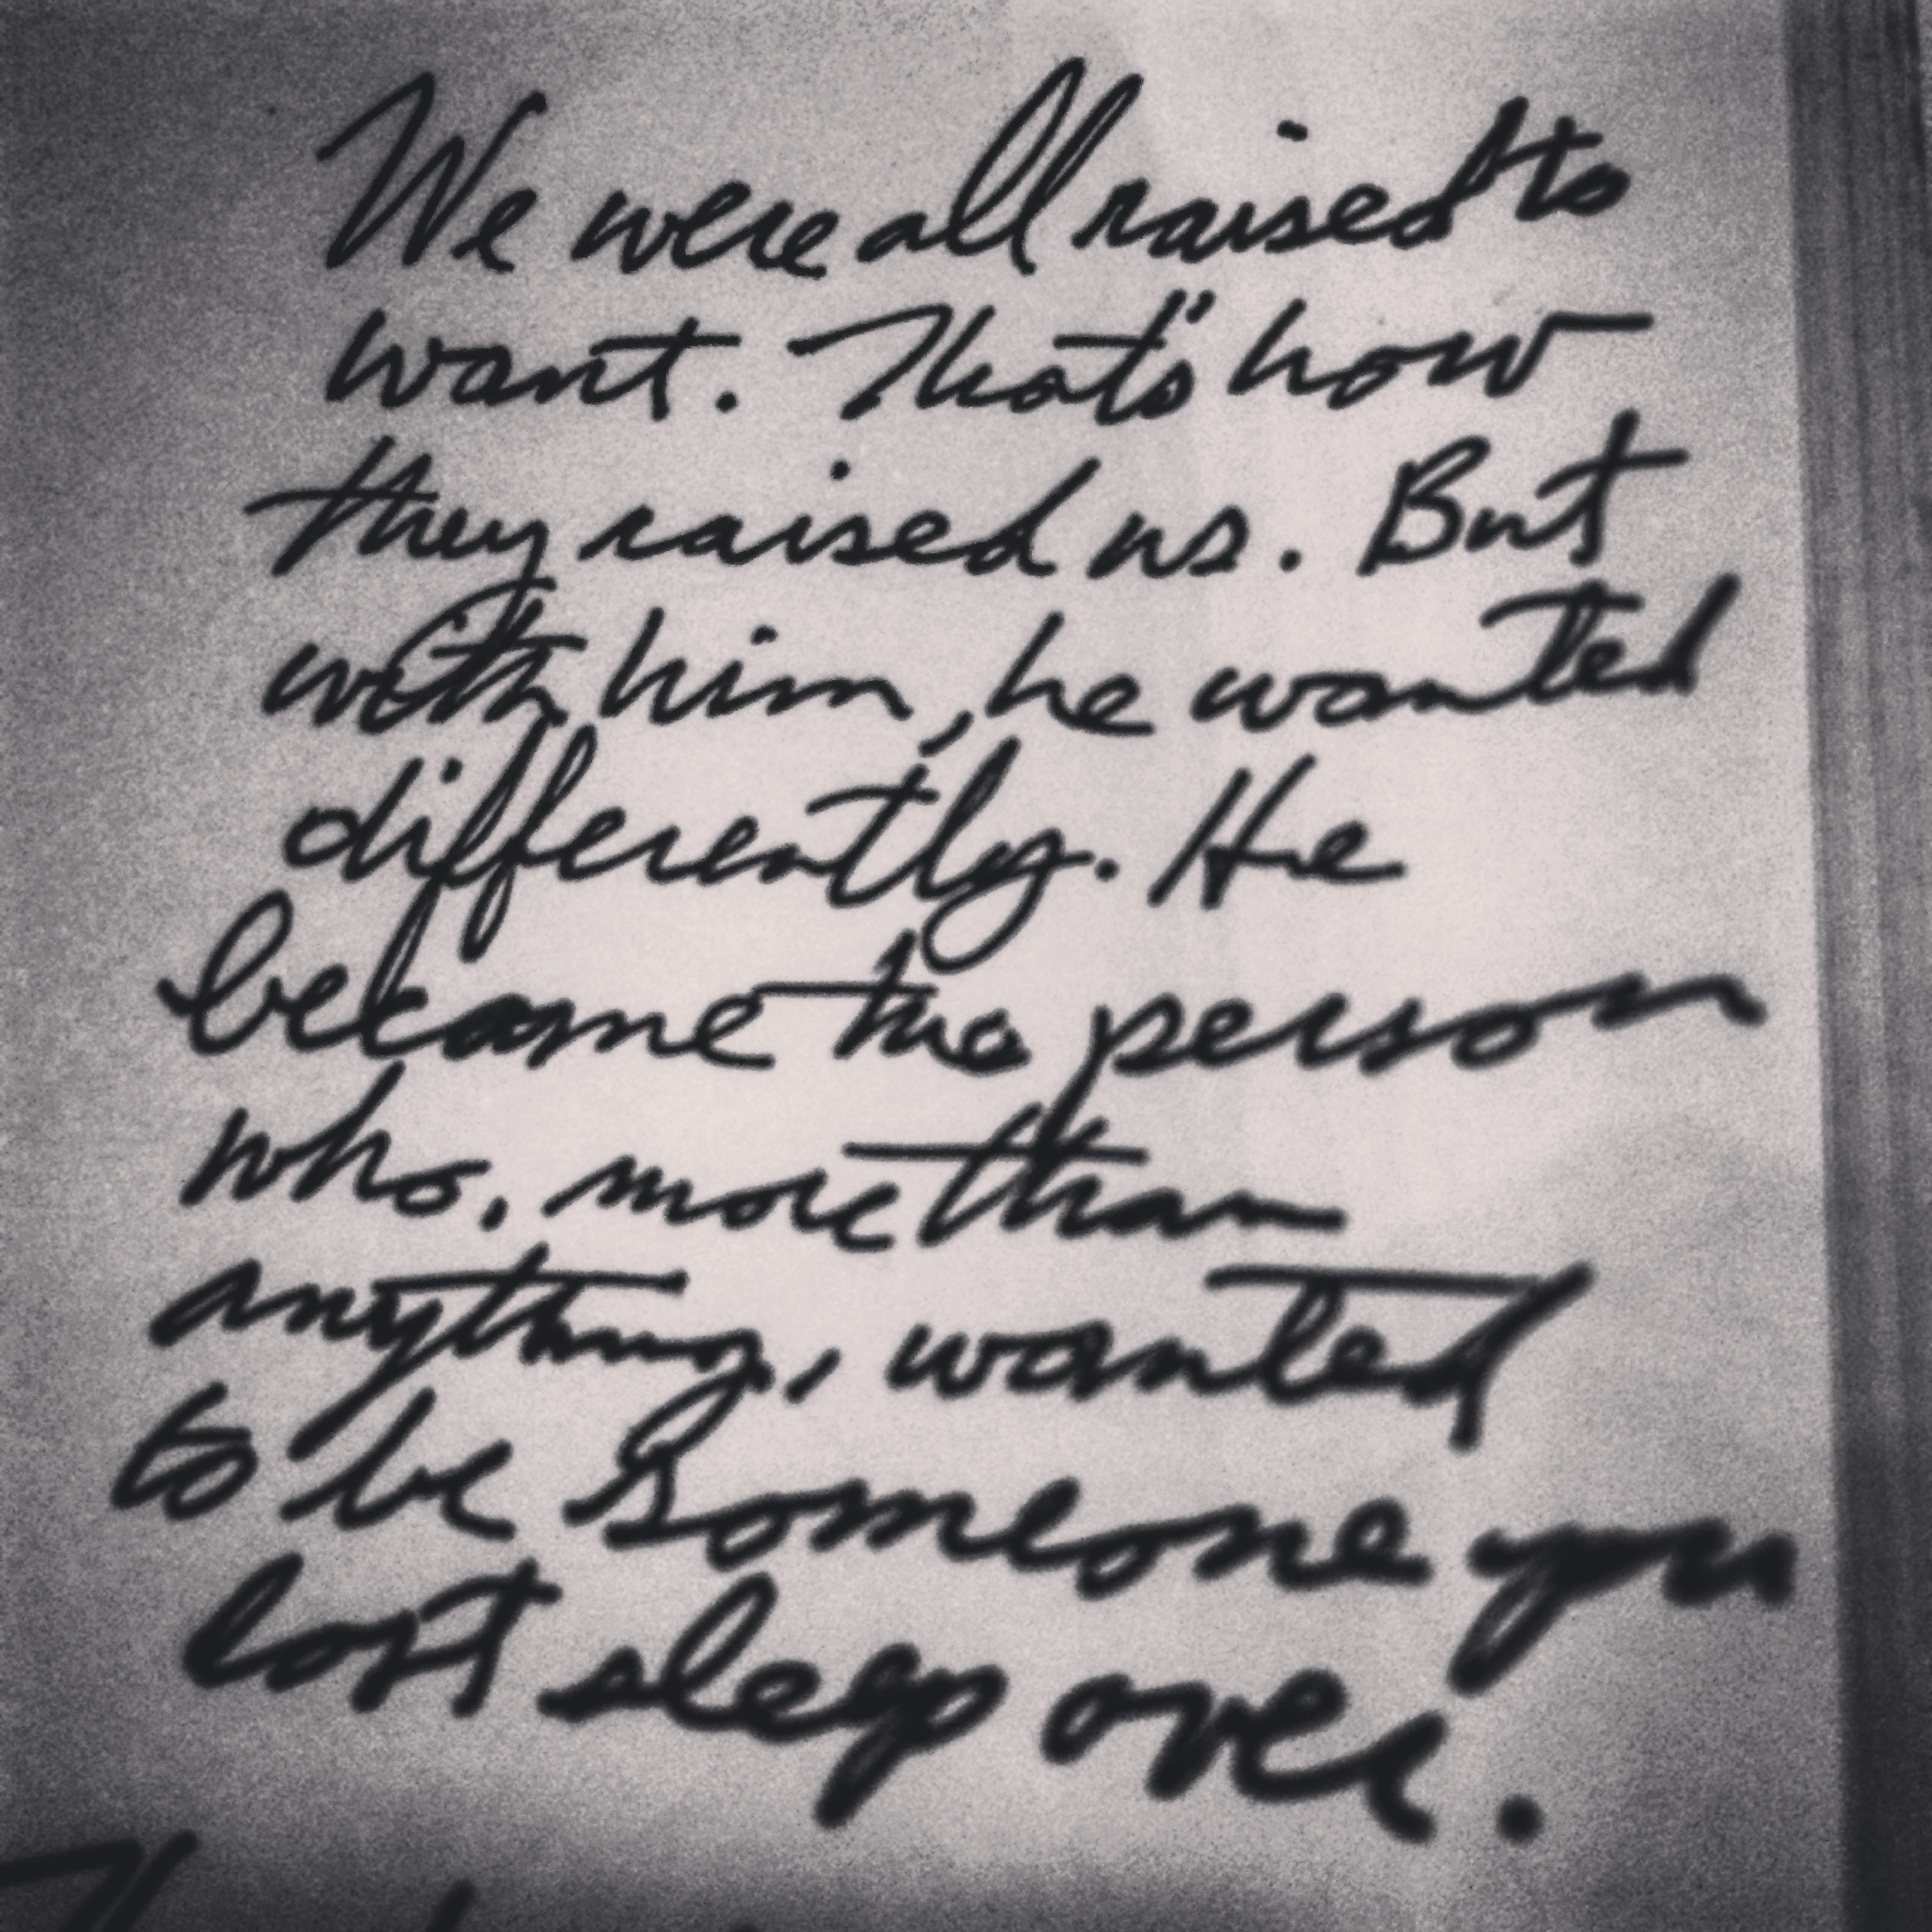 We were all raised to
want. That's how
they raised us. But
with him, he wanted
differently. He
became the person
who, more than
anything, wanted
to be someone you
lost sleep over.